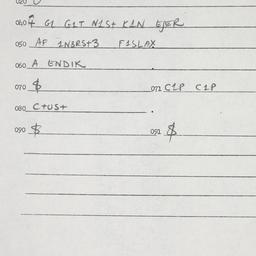 040 G1 G1T N1St K1N EJER
050 AF 1NBRSt3 F1SLAX
060 A ENDIK
070 $ 071 C1P C1P
080 CtUSt .
090 $ 091 $